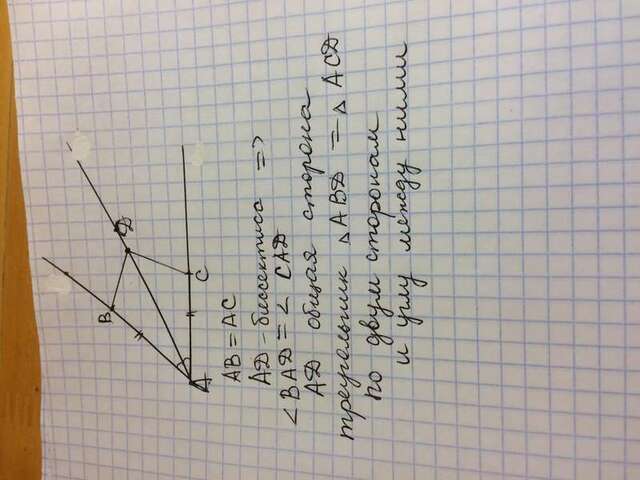 B
D
A
C
AB = AC
AD – биссектиса =>
∠BAD = ∠ CAD
AD общая сторона
треугольник △ABD = △ ACD
по двум сторонам
и углу между ними